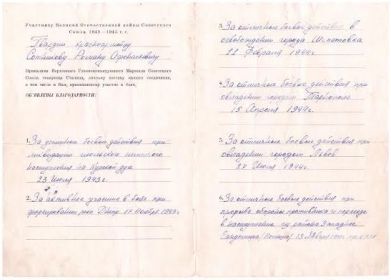 Участнику Великой Отечественной войны Советского
Союза 1941 - 1945 г.г.
Гвардии красноармейцу
Приказами Верховного Главнокомандующего Маршала Советского
Союза товарища Сталина, личному составу нашего соединения,
в том числе и Вам, принимавшему участие в боях,
ОБЪЯВЛЕНЫ БЛАГОДАРНОСТИ:
1. За успешные боевые действия при
ликвидации июльского немецкого
наступления на Курской дуге
23 Июля 1943 г.
2. За активное участие в боях при
форсировании реки Днепр
3. За отличные боевые действия в
освобождении города Шепетовка
11 Февраля 1944 г.
4. За отличные боевые действия при
овладении городом Тарнополь
15 Апреля 1944 г.
5. За отличные боевые действия при
овладении городом Львов
27 Июля 1944 г.
6. За отличные боевые действия при
прорыве обороны противника и переходе
в наступление
Сандомира